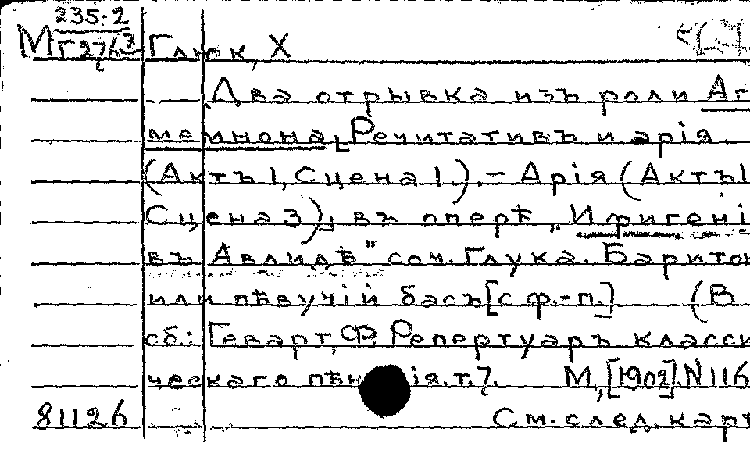 235:2
М Г2763 Глюк, Х
Два отрывка изъ роли Аг
мемнона, Речитативъ и арія
(Актъ 1, Сцена 1.).- Арія (Актъ 1
Сцена 3), въ оперѣ „Ифигені
въ Авлидѣ" соч. Глука. Баритон
или пѣвучій басъ [с ф.-п.] (В
сб.: Геварт, Ф. Репертуаръ класси
ческаго пѣнія. т. 7. М, [1902] N 116
81126 См. след. карт